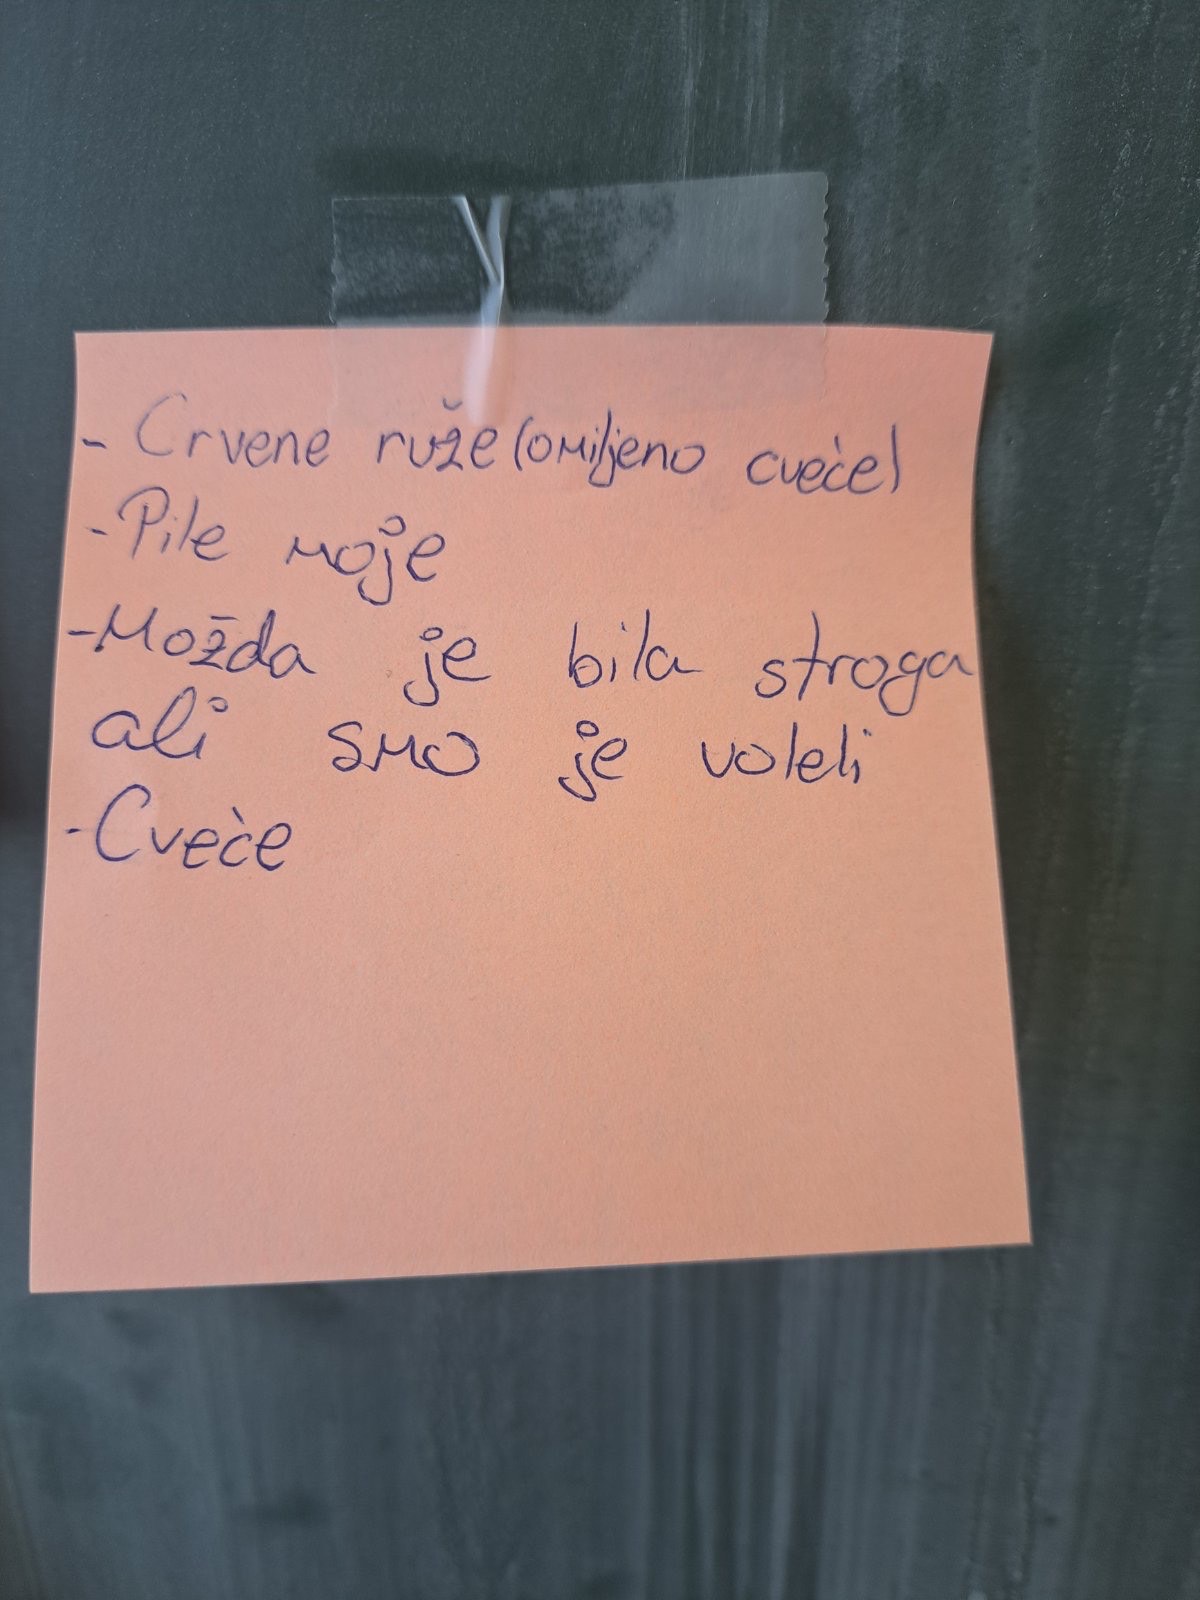 - Crvene ruže (omiljeno cveće)
- Pile moje
- Možda je bila stroga
ali smo je voleli
- Cveće